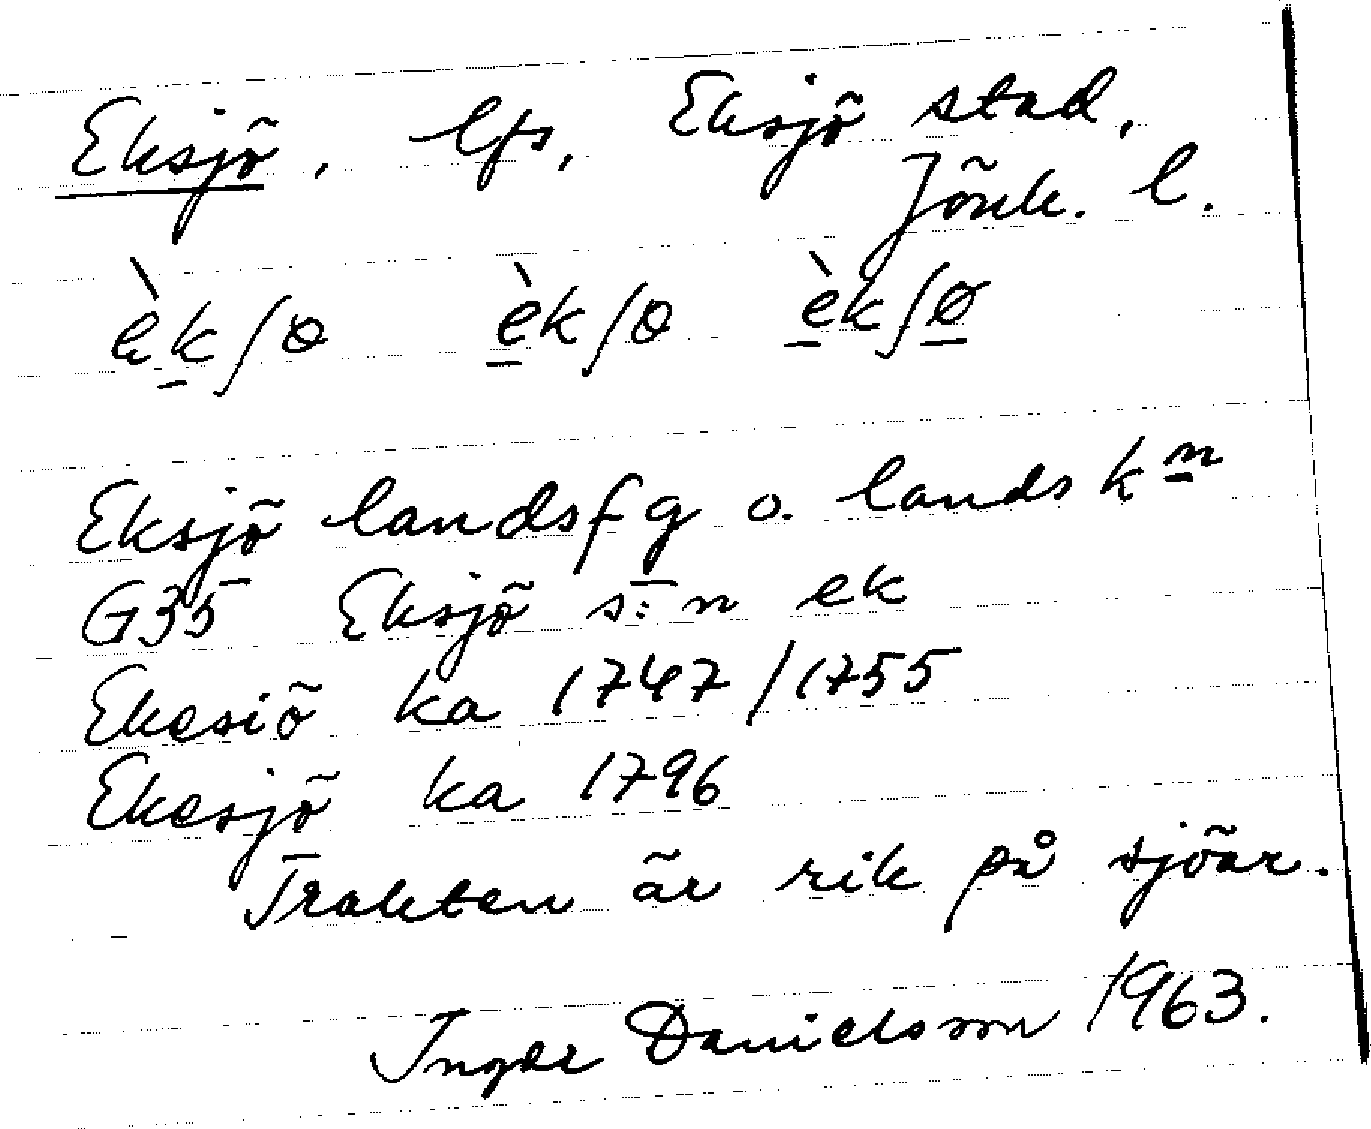 Eksjö, lfs, Eksjö stad,
Jönk. l.
èkʃɵ èkʃɵ èkʃø
Eksjö landsfg o. landskn
G35 Eksjö s:n ek
Ekesiö ka 1747/1755
Ekesjö ka 1796
Trakten är rik på sjöar.
Inger Danielsson 1963.